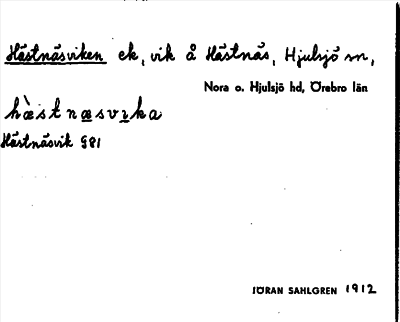 Hästnäsviken ek, vik å Hästnäs, Hjulsjö sn,
Nora o. Hjulsjö hd, Örebro län
hæ̀stnæsvɩka
Hästnäsvik G81
JÖRAN SAHLGREN 1912